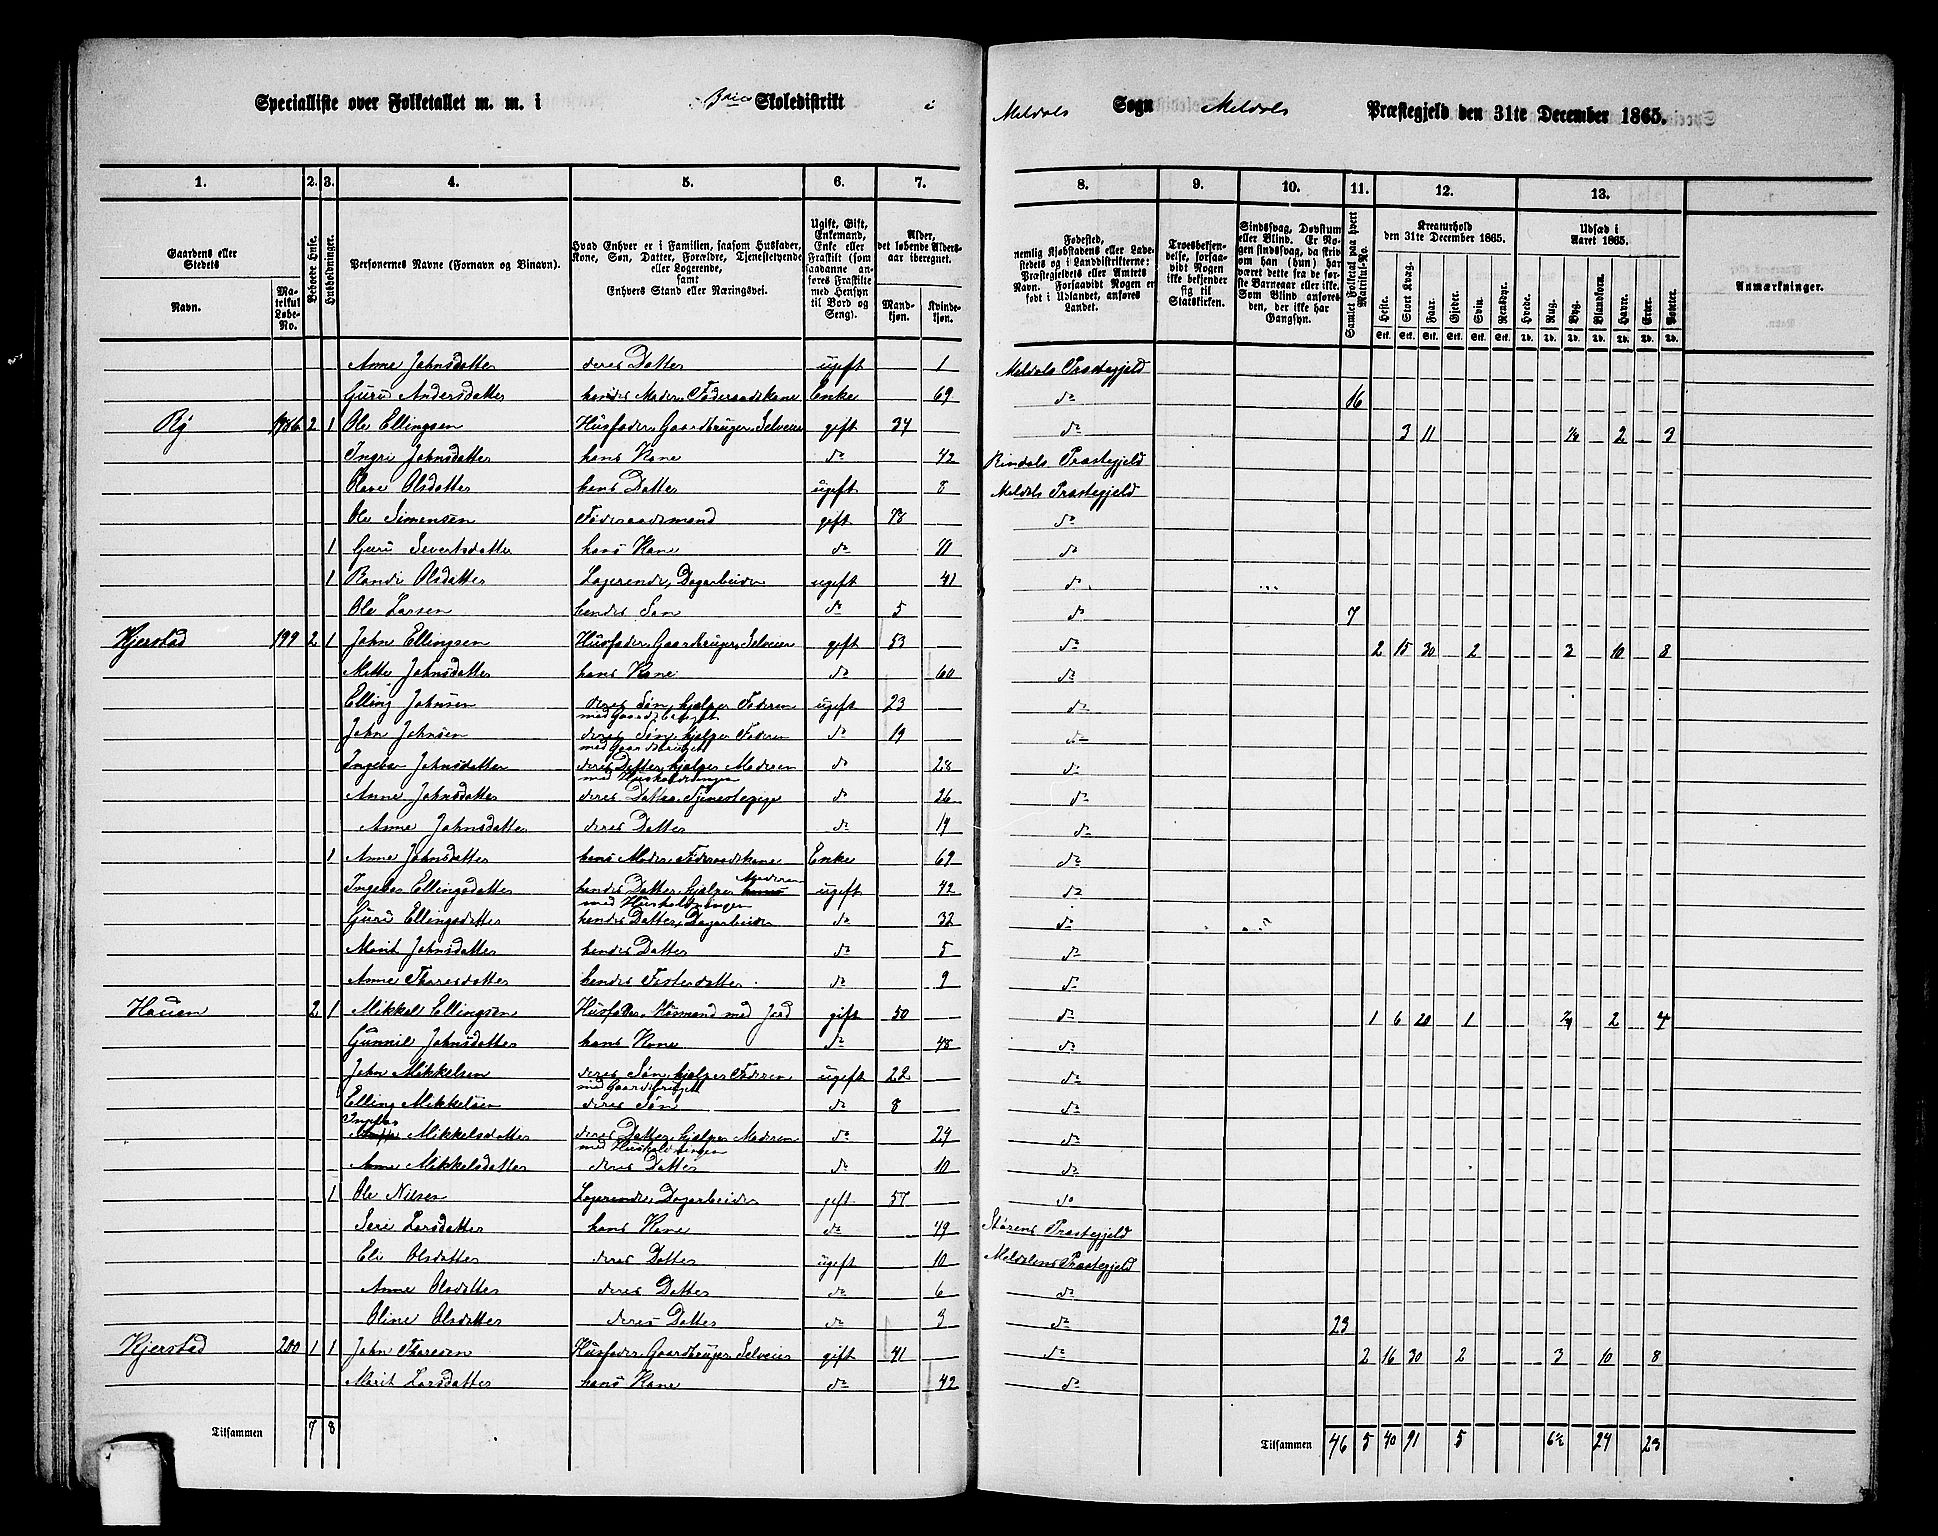 Specialliste over Folketallet m. m. i Skoledistrikt i Meldals Sogn Meldals Præstegjeld den 31te December 1865.
1. 2. 3. 4. 5. 6. 7. 8. 9. 10. 11. 12. 13.
Gaardens eller Stedets
Navn. Matrikul Løbe-No.
Beboede Huse.
Husholdninger.
Personernes Navne (Fornavn og Tilnavn).
Hvad Enhver er i Familien, saasom Husfader, Kone, Søn, Datter, Forældre, Tjenestetyende eller Logerende, samt Enhvers Stand eller Næringsvei.
Ugift, Gift, Enkemand, Enke eller Fraskilt (som saadanne anføres Fraskilte med Hensyn til Bord og Seng).
Alder, det løbende Alders-aar iberegnet.
Mandkjøn. Kvindekjøn.
Fødested, nemlig Kjøbstadens eller Ladestedets og i Landdistrikterne: Præstegjeldets eller Amtets Navn. Forsaavidt Nogen er født i Udlandet, anføres Landet.
Troesbekjendelse, forsaavidt Nogen ikke bekjender sig til Statskirken.
Sindssvag, Døvstum eller Blind. Er Nogen sindssvag, da skrives om han (hun) har været dette fra de første Barneaar eller ikke. Som Blind anføres den, der ikke har Gangsyn.
Samlet Folketal paa hvert Matrikul-No.
Kreaturhold den 31te December 1865.
Heste. Stort Kvæg. Faar. Gjeder. Svin. Rensdyr.
Udsæd i Aaret 1865.
Hvede. Rug. Byg. Blandkorn. Havre. Erter. Poteter.
Anmærkninger.
Anne Johnsdatter deres Datter ugift 1 Meldals Præstegjeld
Guru Andersdatter hendes Moder, Føderaadskone Enke 69 do 16
Rø 2 1 Ole Ellingsen Husfader, Gaardbruger, Selveier gift 34 do 3 11 2 3
Ingri Johnsdatter hans Kone do 42 Rindals Præstegjeld
Olave Olsdatter hans Datter ugift 8 Meldals Præstegjeld
Ole Simensen Føderaadsmand gift 78 do
1 Guru Sivertsdatter hans Kone do 71 do
1 Randi Olsdatter Logerende, Dagarbeider ugift 41 do
Ole Larsen hendes Søn do 5 do 7
Kjerstad 199 2 1 John Ellingsen Husfader, Gaardbruger, Selveier gift 53 do 2 15 30 2 3 10 8
Mette Johnsdatter hans Kone do 60 do
Elling Johnsen deres Søn, hjelper Faderen med Gaardsbruget ugift 23 do
John Johnsen deres Søn, hjelper Faderen med Gaardsbruget do 19 do
Ingebor Johnsdatter deres Datter, hjelper Moderen med Husholdningen do 28 do
Anne Johnsdatter deres Datter, Tjenestepige do 26 do
Anne Johnsdatter deres Datter do 19 do
1 Anne Johnsdatter hans Moder, Føderaadskone Enke 69 do
Ingebor Ellingsdatter hendes Datter, hjelper Moderen med Husholdningen ugift 42 do
Guru Ellingsdatter hendes Datter, Dagarbeider do 32 do
Marit Johnsdatter hendes Datter do 5 do
Anne Thoresdatter hendes Fosterdatter do 9 do
Hauen 2 1 Mikkel Ellingsen Husfader, Husmand med Jord gift 50 do 1 6 20 1 2 4
Gunnil Johnsdatter hans Kone do 48 do
John Mikkelsen deres Søn, hjelper Faderen med Gaardsbruget ugift 22 do
Elling Mikkelsen deres Søn do 8 do
Ingebor Mikkelsdatter deres Datter, hjelper Moderen med Husholdningen do 24 do
Anne Mikkelsdatter deres Datter do 10 do
1 Ole Nilsen Logerende, Dagarbeider gift 57 do
Seri Larsdatter hans Kone do 49 Størens Præstegjeld
Eli Olsdatter deres Datter ugift 10 Meldalens Præstegjeld
Anne Olsdatter deres Datter do 6 do
Oline Olsdatter deres Datter do 3 do 23
Kjerstad 200 1 1 John Thoresen Husfader, Gaardbruger, Selveier gift 41 do 2 16 30 2 3 10 8
Marit Larsdatter hans Kone do 42 do
Tilsammen 7 8 Tilsammen 46 5 40 91 5 6½ 24 23